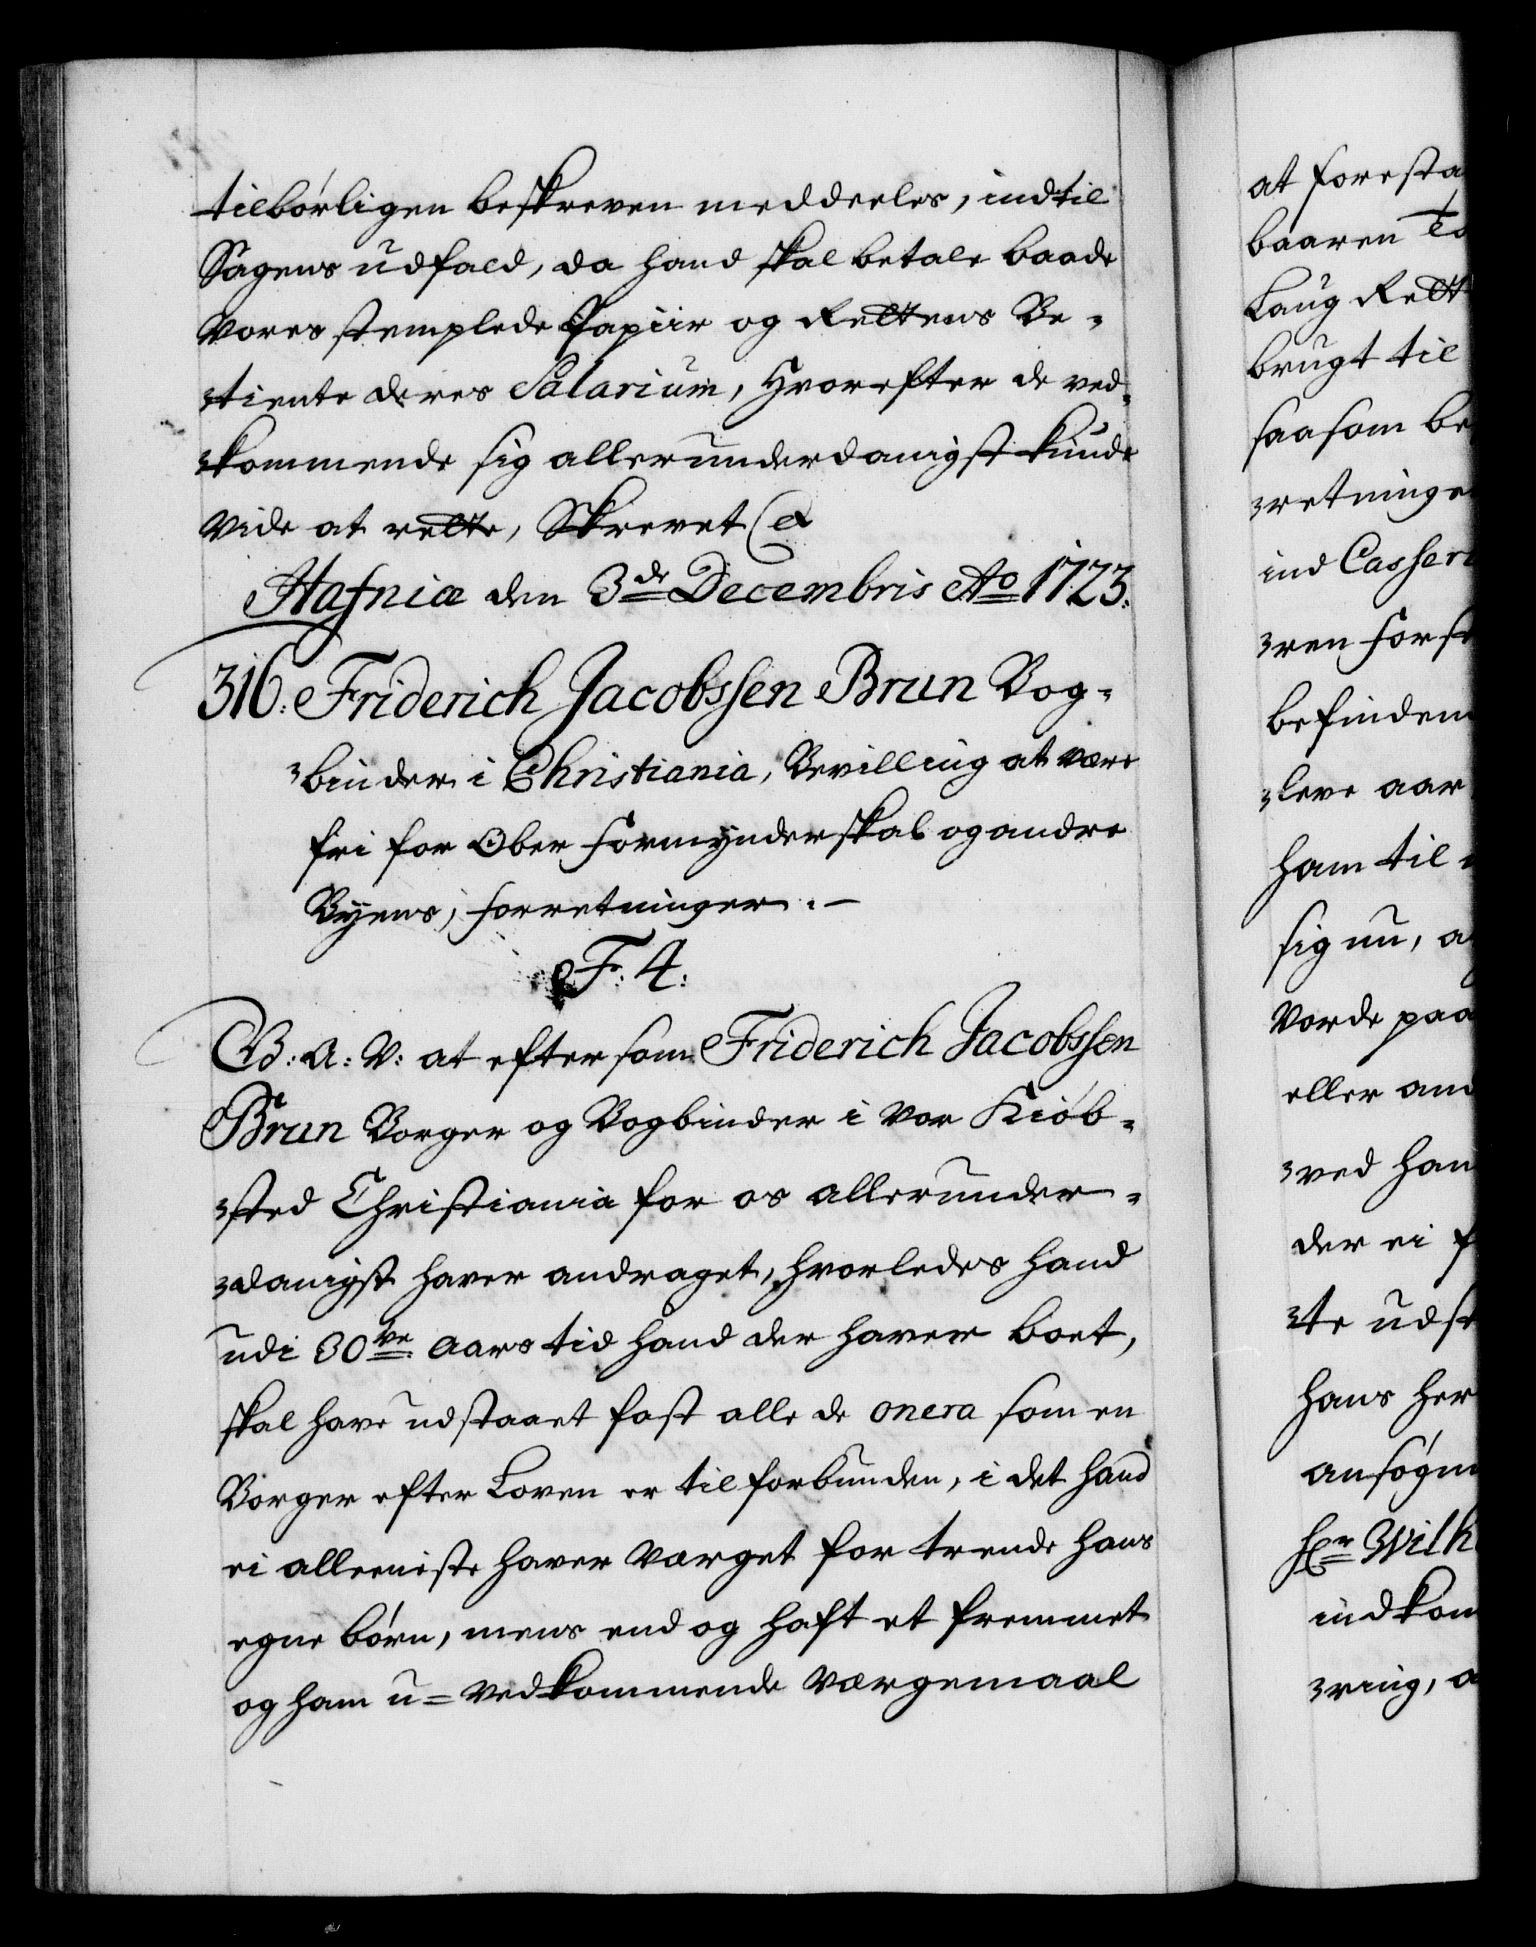 tilbørligen beskreven meddeeles, indtil
Sagens udfald, da hand skal betale baade
Vores stemplede Papiir og Rettens Be-
tiente deres Salarium, Hvorefter de ved-
kommende sig allerunderdanigst kunde
vide at rette, Skrevet &
Hafniæ den 3de Decembris Ao 1723.
316. Friderich Jacobssen Brun Bog-
binder i Christiania, Bevilling at være
fri for Ober Formynderskab og andre
Byens, forretninger. —
F: 4:
G: A: V: at eftersom Friderich Jacobssen
Brun Borger og Bogbinder i vor Kiøb-
sted Christiania for os allerunder-
danigst haver andraget, hvorledes hand
udi 30ve aars tid hand der haver boet,
skal have udstaaet fast alle de onera som en
Borger efter Loven er til forbunden, i det hand
ei alleeniste haver værget for trende hans
egne børn, mens end og haft et fremmet
og ham u-vedkommende værgemaal
at foresta
baaren
Laug Rett
brugt til
saasom be
retninge
ind Casser
ren forst
befinden
leve aar
ham til
sig nu, a
vorde paa
eller and
ved han
der ei f
te udst
hans her
ansøgni
Hr Wilh
indkom
ring, a